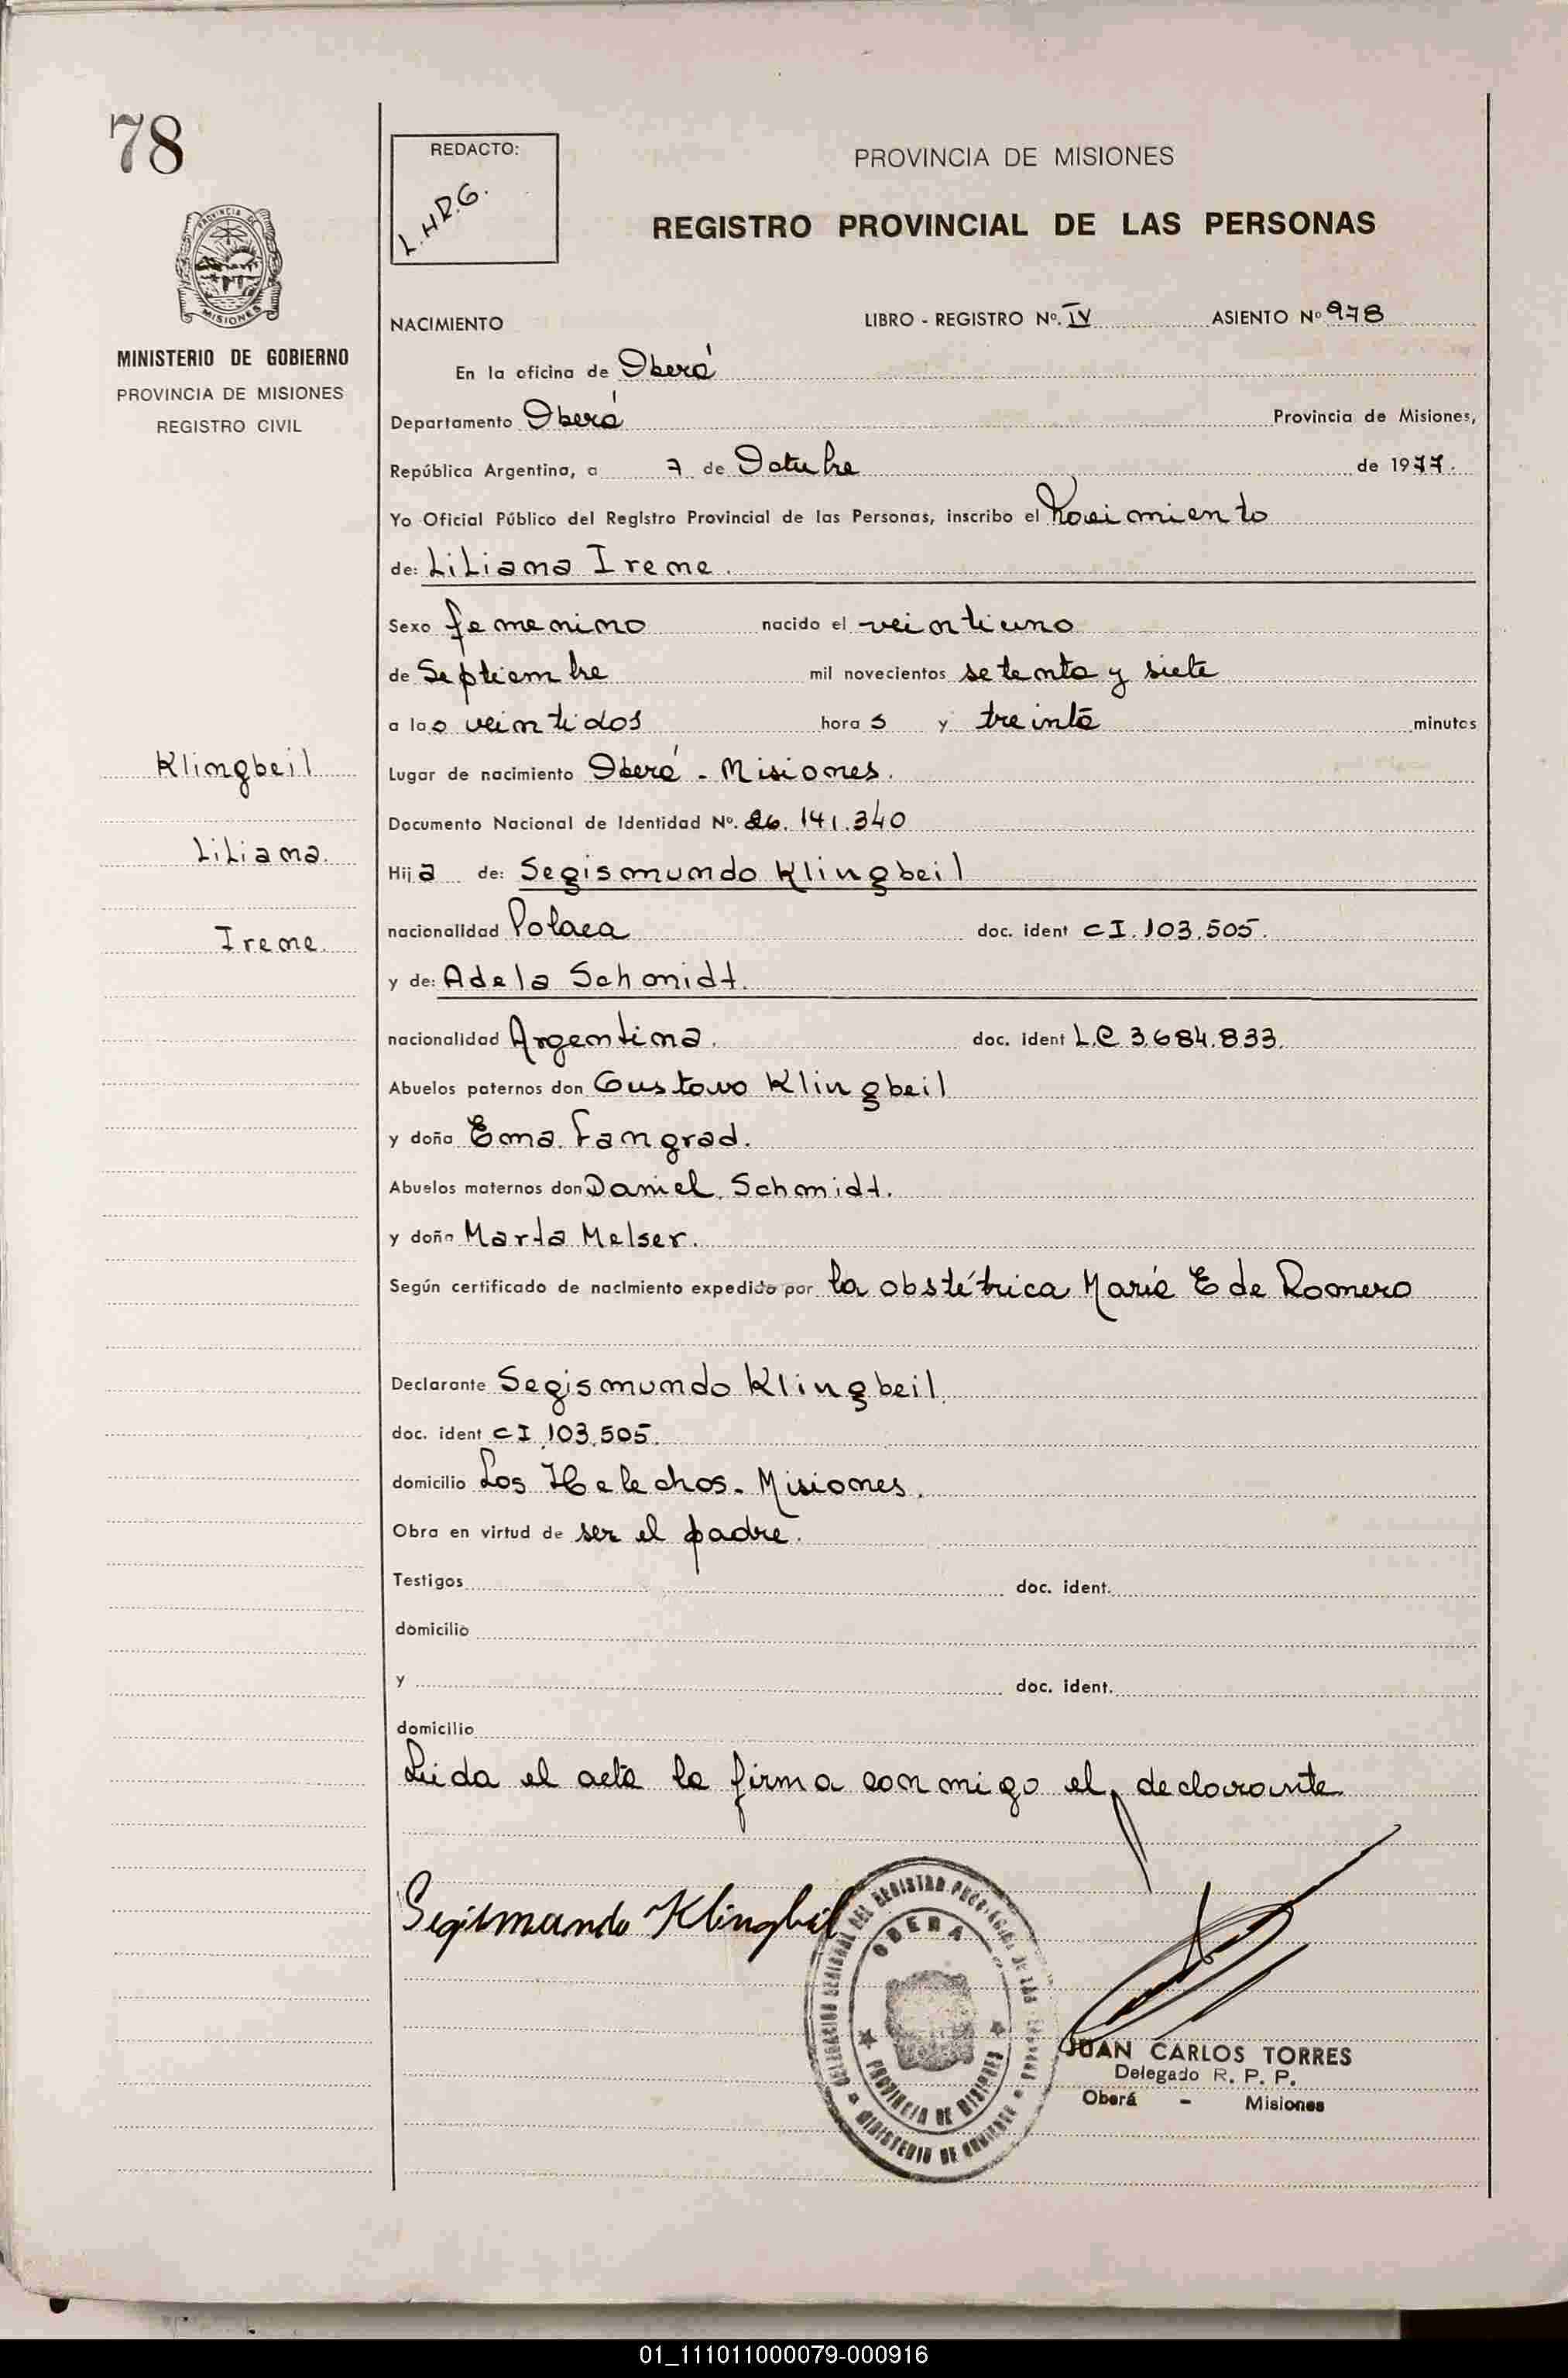 78
REDACTO:
L.H.R.G.
PROVINCIA DE MISIONES
REGISTRO PROVINCIAL DE LAS PERSONAS
PROVINCIA DE
MISIONES
MINISTERIO DE GOBIERNO
PROVINCIA DE MISIONES
REGISTRO CIVIL
NACIMIENTO LIBRO - REGISTRO Nº. IV ASIENTO Nº 978
En la oficina de Oberá
Departamento Oberá Provincia de Misiones,
República Argentina, a 7 de Octubre de 1977.
Yo Oficial Público del Registro Provincial de las Personas, inscribo el Nacimiento
de: Liliana Irene.
Sexo femenino nacido el veintiuno
de Septiembre mil novecientos setenta y siete
a las veintidos horas y treinta minutos
Lugar de nacimiento Oberá - Misiones.
Documento Nacional de Identidad Nº. 26.141.340
Hija de: Segismundo Klingbeil
nacionalidad Polaca doc. ident CI. 103.505.
y de: Adela Schmidt.
nacionalidad Argentina. doc. ident L.C 3.684.833.
Abuelos paternos don Gustavo Klingbeil
y doña Ema Fangrad.
Abuelos maternos don Daniel Schmidt.
y doña Marta Melser.
Según certificado de nacimiento expedido por la obstétrica María E de Romero
Declarante Segismundo Klingbeil
doc. ident CI 103.505.
domicilio Los Helechos - Misiones.
Obra en virtud de ser el padre.
Testigos doc. ident.
domicilio
y doc. ident.
domicilio
Leida el acta la firma conmigo el declarante
Klingbeil
Liliana.
Irene.
Segismundo Klingbeil
DELEGACION REGIONAL DEL REGISTRO PROVINCIAL DE LAS PERSONAS
OBERA
PROVINCIA DE MISIONES
MINISTERIO DE GOBIERNO
JUAN CARLOS TORRES
Delegado R. P. P.
Oberá - Misiones
01_111011000079-000916